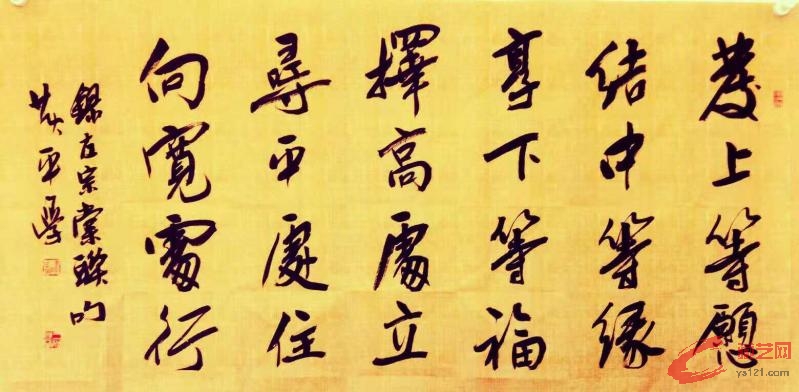 發上等願
結中等緣
享下等福
擇高處立
尋平處住
向寬處行
錄左宗棠聯句
艺网
ys121.com